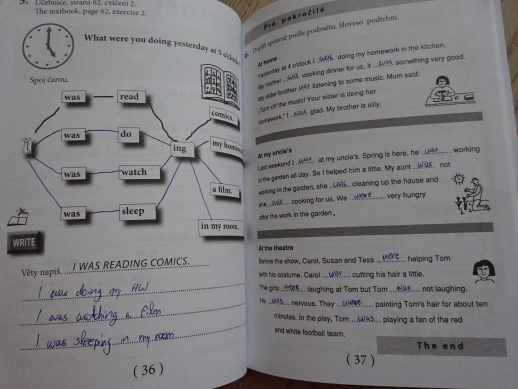 Učebnice, strana 62, cvičení 2.
The textbook, page 62, exercise 2.
What were you doing yesterday at 5 o'clock
Spoj čarou.
was read
comics.
was do
ing
my homew
was watch
a film.
was sleep
in my room.
WRITE
Věty napiš. I WAS READING COMICS.
I was doing my HW
I was watching a film
I was sleeping in my room
( 36 )
Pro pokročilé
Doplň správně podle podmětu. Sloveso podtrhni.
At home
Yesterday at 4 o'clock I was doing my homework in the kitchen.
My mother was cooking dinner for us, it was something very good.
My sister brother was listening to some music. Mum said:
„Turn off the music! Your sister is doing her
homework." I was glad. My brother is silly.
At my uncle's
Last weekend I was at my uncle's. Spring is here, he was working
in the garden all day. So I helped him a little. My aunt was not
working in the garden, she was cleaning up the house and
she was cooking for us. We were very hungry
after the work in the garden.
At the theatre
Before the show, Carol, Susan and Tess were helping Tom
with his costume. Carol was cutting his hair a little.
The girls were laughing at Tom but Tom was not laughing.
He was nervous. They were painting Tom's hair for about ten
minutes. In the play, Tom was playing a fan of the red
and white football team.
The end
( 37 )